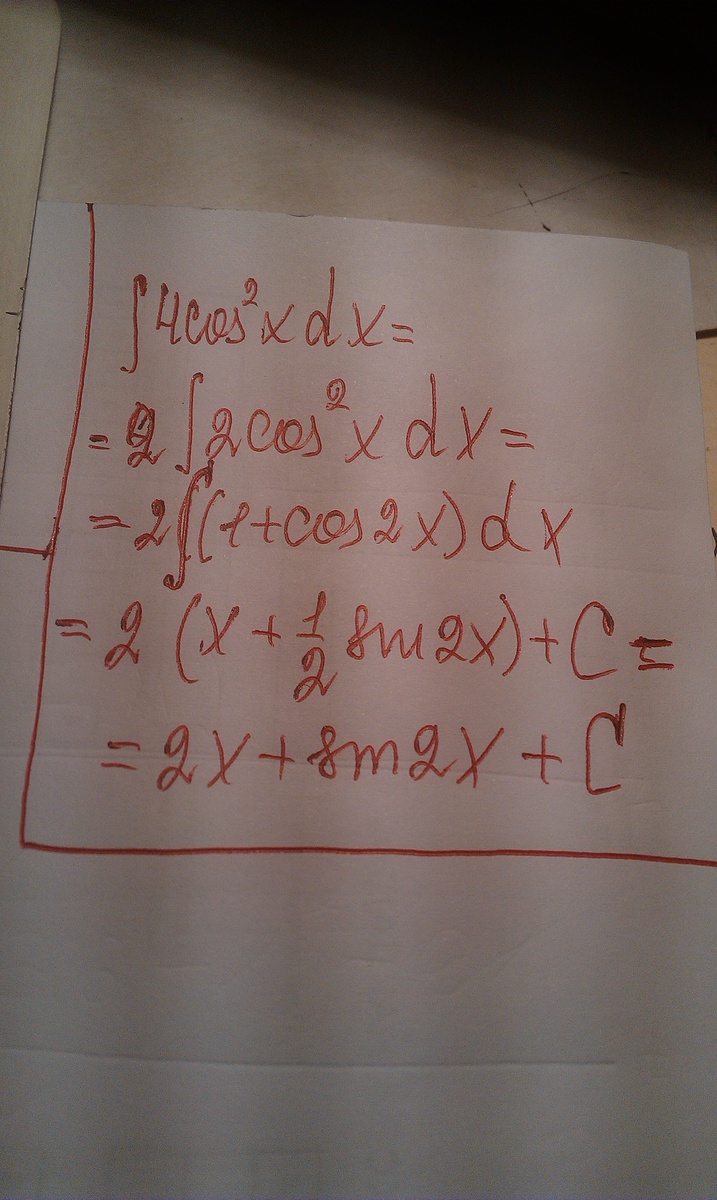 ∫4cos²x dx=
=2∫2cos²x dx=
=2∫(1+cos2x)dx
=2(x+1/2 sin2x)+C=
=2x+sin2x+C